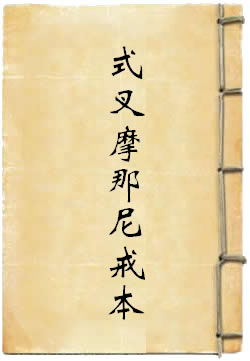 式叉摩那尼戒本